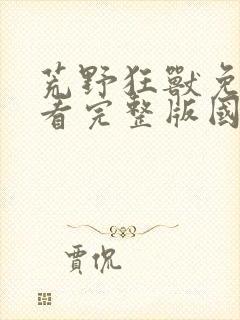 荒野狂獸免
者完整版國
賈侃